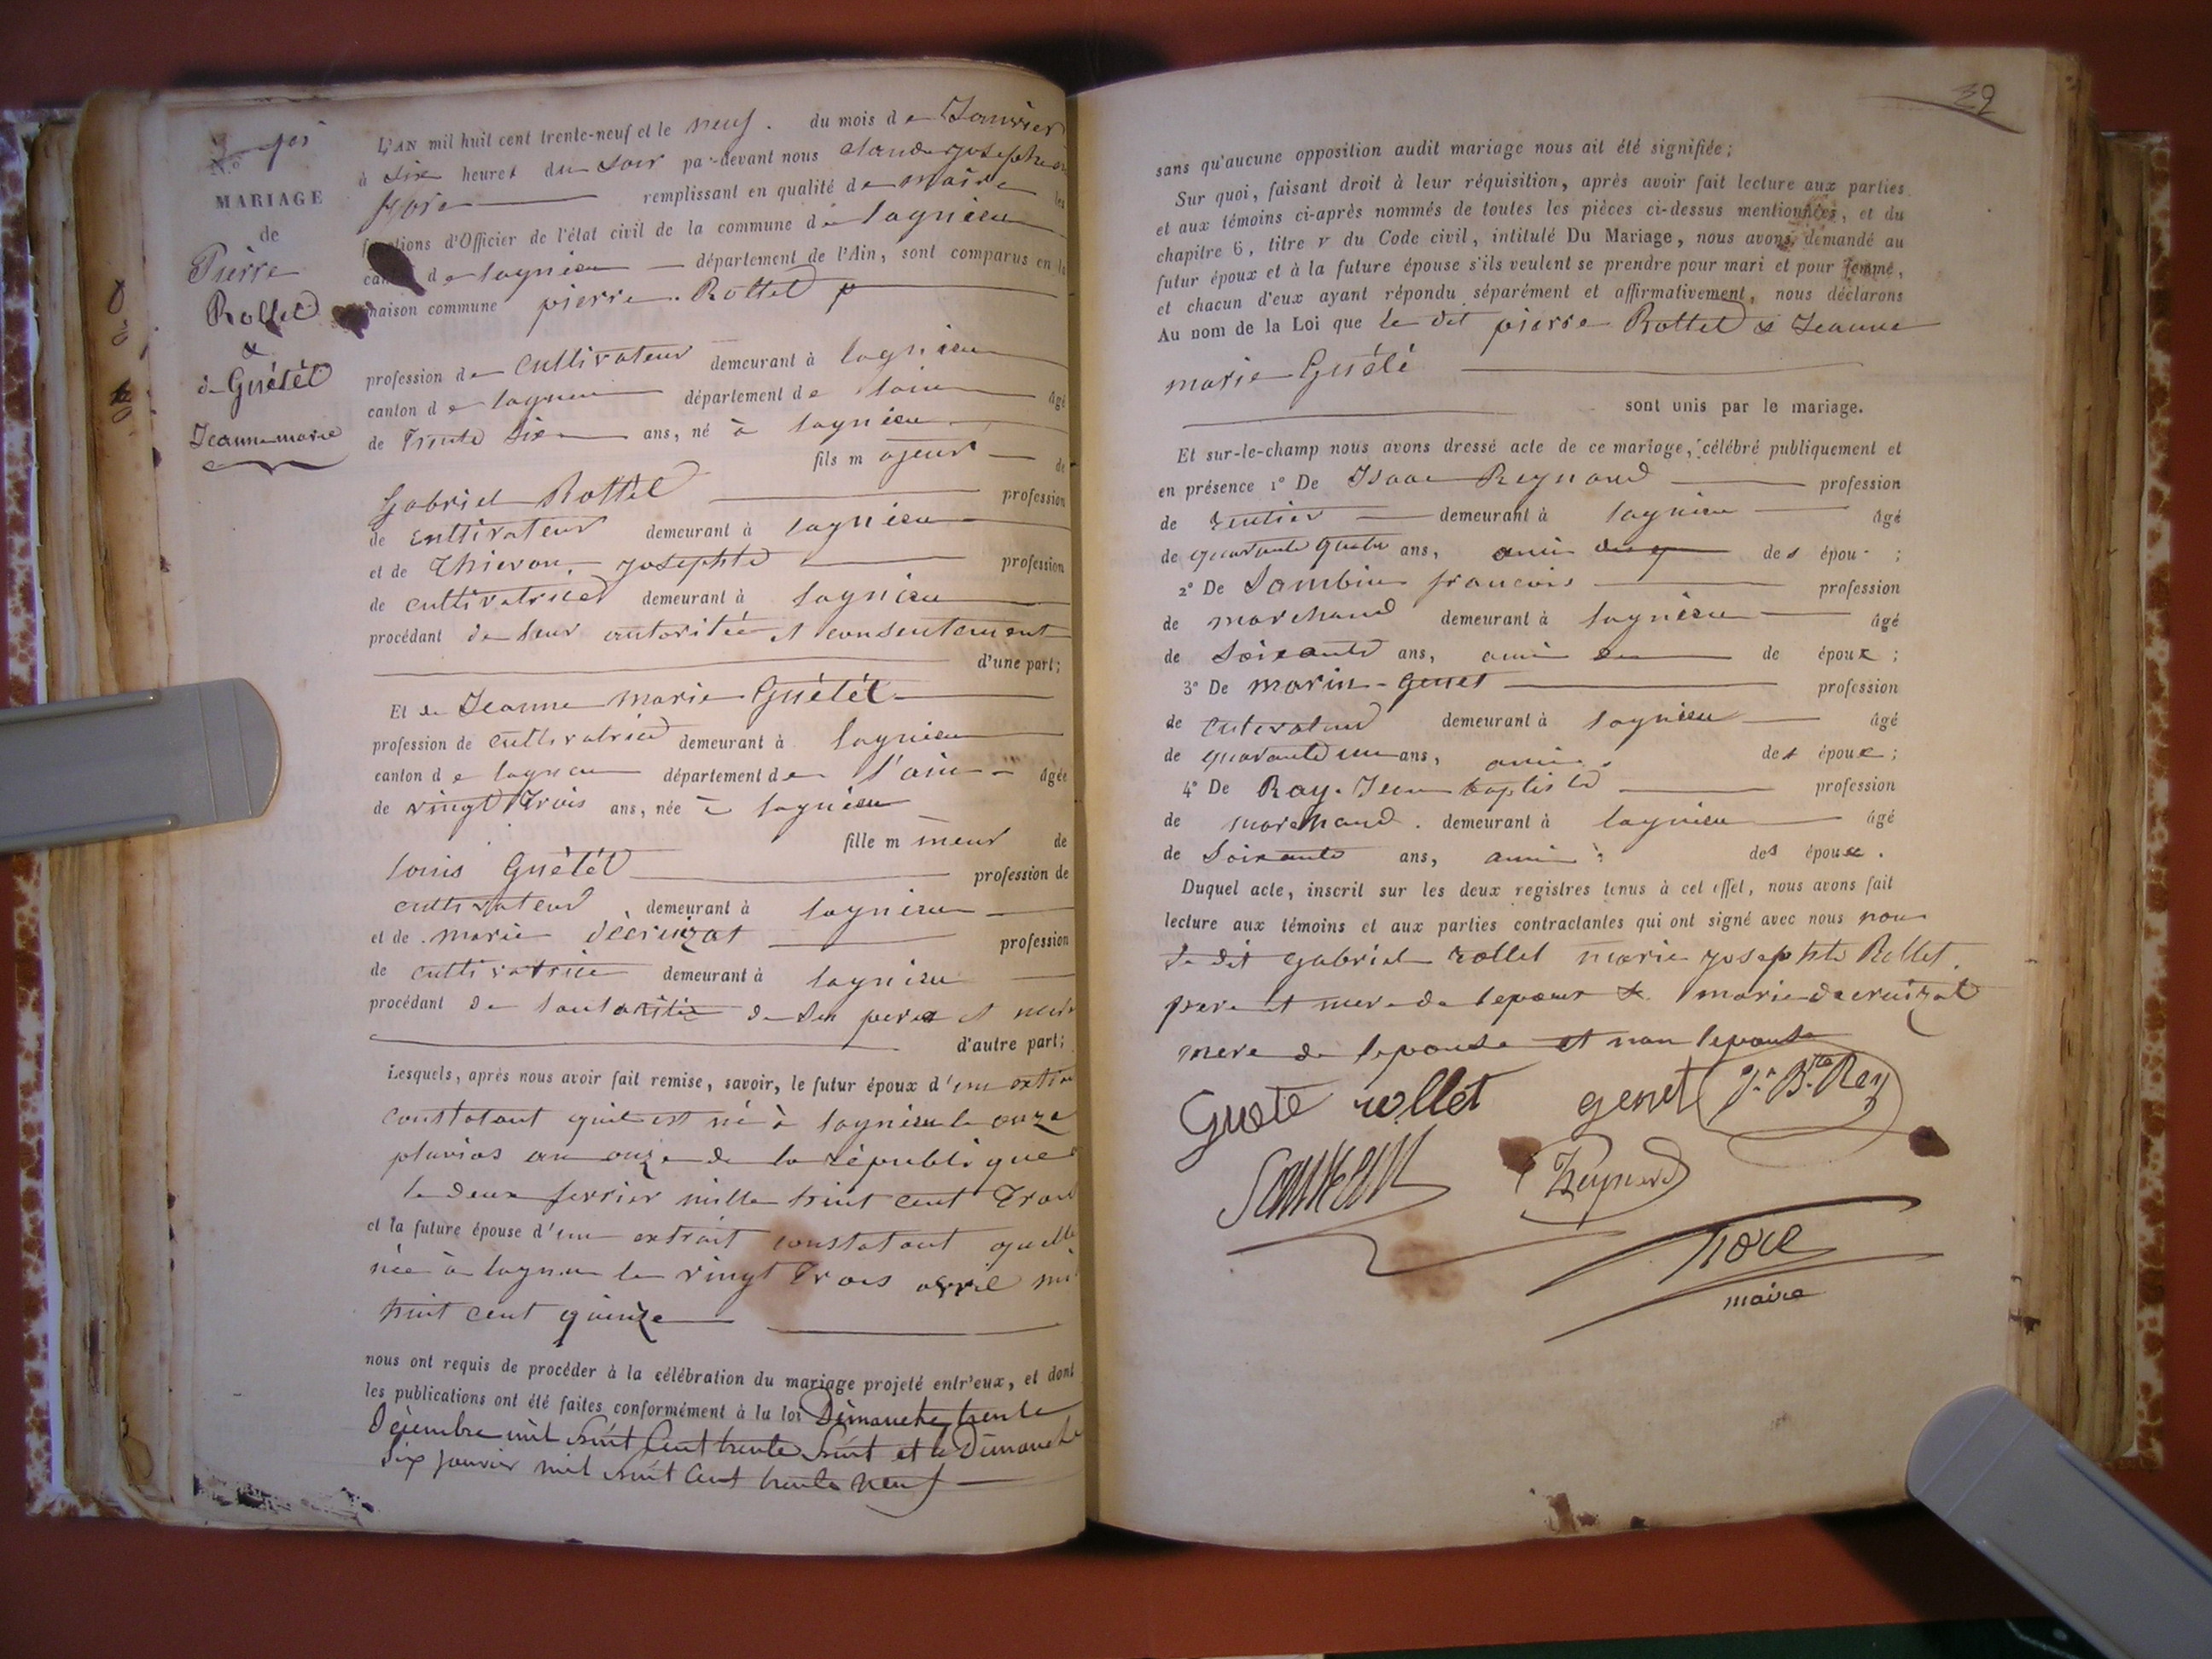 N.o
MARIAGE
de
Pierre
Rollet
&
de Guétét
Jeanne marie
L'AN mil huit cent trente-neuf et le neuf. du mois de Janvier
à six heures du soir par-devant nous claude josephe
remplissant en qualité de maire les
fonctions d'Officier de l'état civil de la commune de lagnieu
canton de lagnieu département de l'Ain, sont comparus en la
maison commune pierre Rottet
profession de cultivateur demeurant à lagnieu
canton de lagnieu département de lain âgé
de trente six ans, né à lagnieu
fils majeur de
Gabriel Rottet profession
de cultivateur demeurant à lagnieu
et de josephte profession
de cultivatrice demeurant à lagnieu
procédant de leur autoritée et consentement
d'une part;
Et de Jeanne marie Guétét
profession de cultivatrice demeurant à lagnieu
canton de lagnieu département de l'ain âgée
de vingt trois ans, née à lagnieu
fille mineur de
louis Guétét profession de
cultivateur demeurant à lagnieu
et de marie décruizat profession
de cultivatrice demeurant à lagnieu
procédant de lautoritée de ses pere et mere
d'autre part;
Lesquels, après nous avoir fait remise, savoir, le futur époux d'un extrai
constatant quil est né à lagnieu le onze
pluvios an onze de la république
le deux fevrier mille huit cent trois
et la future épouse d'un extrait constatant quelle
née à lagnieu le vingt trois avril mil
huit cent quinze
nous ont requis de procéder à la célébration du mariage projeté entr'eux, et dont
les publications ont été faites conformément à la loi Dimanche trente
décembre mil huit Cent trente huit et le Dimanche
six janvier mil huit Cent trente neuf
39
sans qu'aucune opposition audit mariage nous ait été signifiée;
Sur quoi, faisant droit à leur réquisition, après avoir fait lecture aux parties
et aux témoins ci-après nommés de toutes les pièces ci-dessus mentionnées, et du
chapitre 6, titre v du Code civil, intitulé Du Mariage, nous avons demandé au
futur époux et à la future épouse s'ils veulent se prendre pour mari et pour femme,
et chacun d'eux ayant répondu séparément et affirmativement, nous déclarons
Au nom de la Loi que le dit pierre Rottet & Jeanne
marie Guété
sont unis par le mariage.
Et sur-le-champ nous avons dressé acte de ce mariage, célébré publiquement et
en présence 1° De Isaac Reynaud profession
de rentier demeurant à lagnieu âgé
de quarante quatre ans, ami des épou- ;
2° De Sambin francois profession
de marchand demeurant à lagnieu âgé
de soixante ans, ami de époux ;
3° De marin genet profession
de cutivateur demeurant à lagnieu âgé
de quarante un ans, ami des époux ;
4° De Ray. Jean baptiste profession
de marchand. demeurant à lagnieu âgé
de soixante ans, ami des époux.
Duquel acte, inscrit sur les deux registres tenus à cet effet, nous avons fait
lecture aux témoins et aux parties contractantes qui ont signé avec nous non
le dit gabriel rollet marie josephte Rollet
pere et mere de lepoux & marie decruizat
mere de lepouse et non lepouse
Guete rollet genet J.n B.te Rey
Reynaud
maire